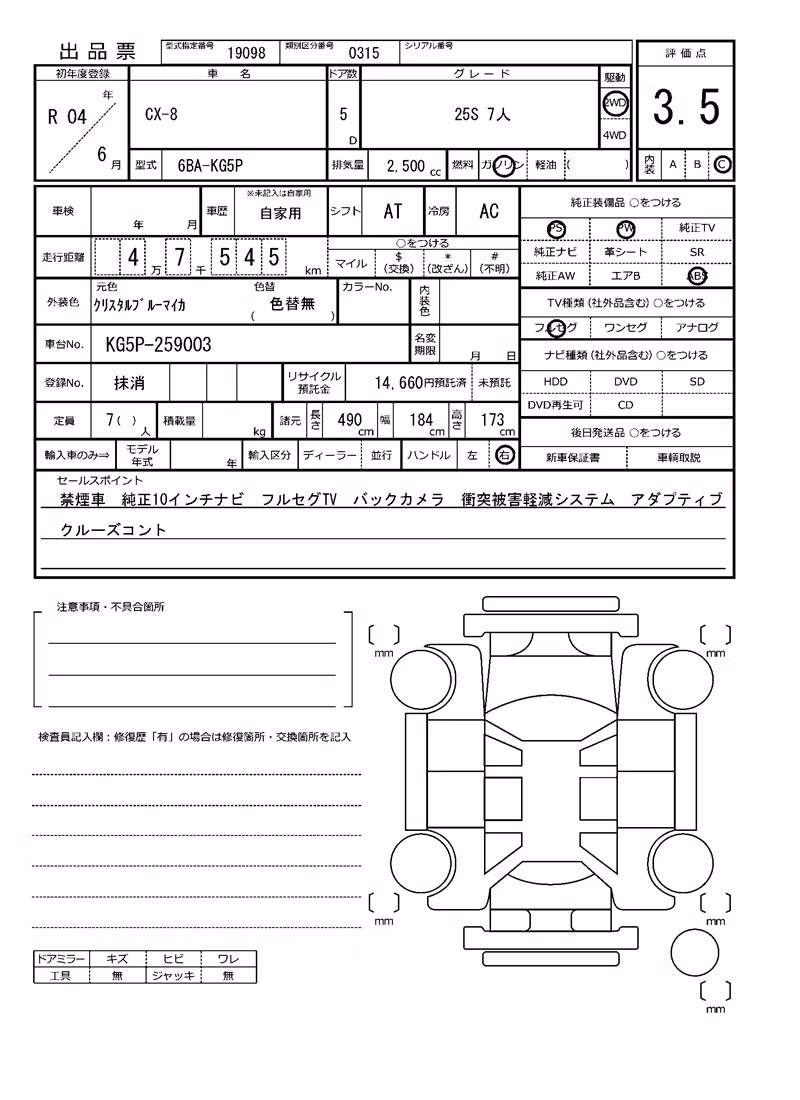 出品票
型式指定番号 19098 類別区分番号 0315 シリアル番号
評価点
3.5
内装 A B C
初年度登録 車名 ドア数 グレード 駆動
R 04 年 6 月
CX-8 5 D 25S 7人
2WD
4WD
型式 6BA-KG5P 排気量 2,500 cc 燃料 ガソリン 軽油 ( )
車検 年 月 車歴 ※未記入は自家用 自家用 シフト AT 冷房 AC
走行距離 4 万 7 千 5 4 5 km
○をつける
マイル $(交換) *(改ざん) #(不明)
外装色 元色 クリスタルブルーマイカ 色替 ( 色替無 ) カラーNo. 内装色
車台No. KG5P-259003 名変期限 月 日
登録No. 抹消 リサイクル預託金 14,660円預託済 未預託
定員 7( )人 積載量 kg 諸元 長さ 490 cm 幅 184 cm 高さ 173 cm
輸入車のみ⇒ モデル年式 年 輸入区分 ディーラー 並行 ハンドル 左 右
純正装備品 ○をつける
PS PW 純正TV
純正ナビ 革シート SR
純正AW エアB ABS
TV種類(社外品含む)○をつける
フルセグ ワンセグ アナログ
ナビ種類(社外品含む)○をつける
HDD DVD SD
DVD再生可 CD
後日発送品 ○をつける
新車保証書 車輌取説
セールスポイント
禁煙車 純正10インチナビ フルセグTV バックカメラ 衝突被害軽減システム アダプティブ
クルーズコント
注意事項・不具合箇所
検査員記入欄：修復歴「有」の場合は修復箇所・交換箇所を記入
ドアミラー キズ ヒビ ワレ
工具 無 ジャッキ 無
mm
mm
mm
mm
mm